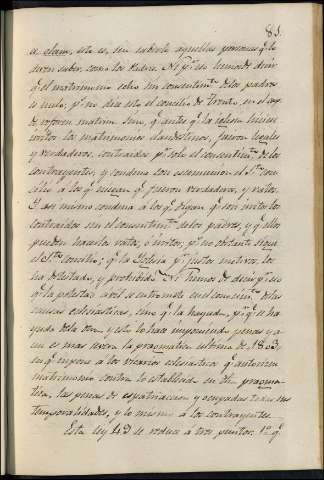 81.
a clam, esto es, sin saberlo aquellas personas q.e lo
deven saber, como los Padres. Ni p.r eso hemos de decir
q.e el matrimonio solo sin consentim.to de los padres
es nulo; p.r no dice esto el concilio de Trento, en el cap.
de reform. matrim. sino q.e antes q.e la iglesia hiciese
irritos los matrimonios clandestinos, fueron legales
y verdaderos, contraidos p.r solo el consentim.to de los
contrayentes, y condena con excomunion el S.to con
cilio à los q.e niegan q.e fueron verdaderos, y ratos.
Y asi mismo condena à los q.e digan q.e son irritos los
contraidos sin el consentim.to de los padres, y q.e ellos
pueden hacerlos ratos, ò irritos, p.r no obstante sigue
el S.to concilio; q.e la Iglesia p.r justos motivos, los
ha detestado, y prohibido. Ni hemos de decir p.r eso
q.e la potestad civil se entromete en el conocim.to de las
causas eclesiasticas, sino q.e la hayuda, p.r q.e se ha
yuda de la otra, y esto lo hace imponiendo penas y a
un es mas severa la pragmatica ultima de 1803.
en q.e impone à los vicarios eclesiasticos q.e autoricen
matrimonio contra lo establecido en dha pragma
tica, las penas de expatriacion y ocupadas todas sus
temporalidades, y lo mismo à los contrayentes.
Esta ley 49 se reduce à tres puntos. 1.o q.e